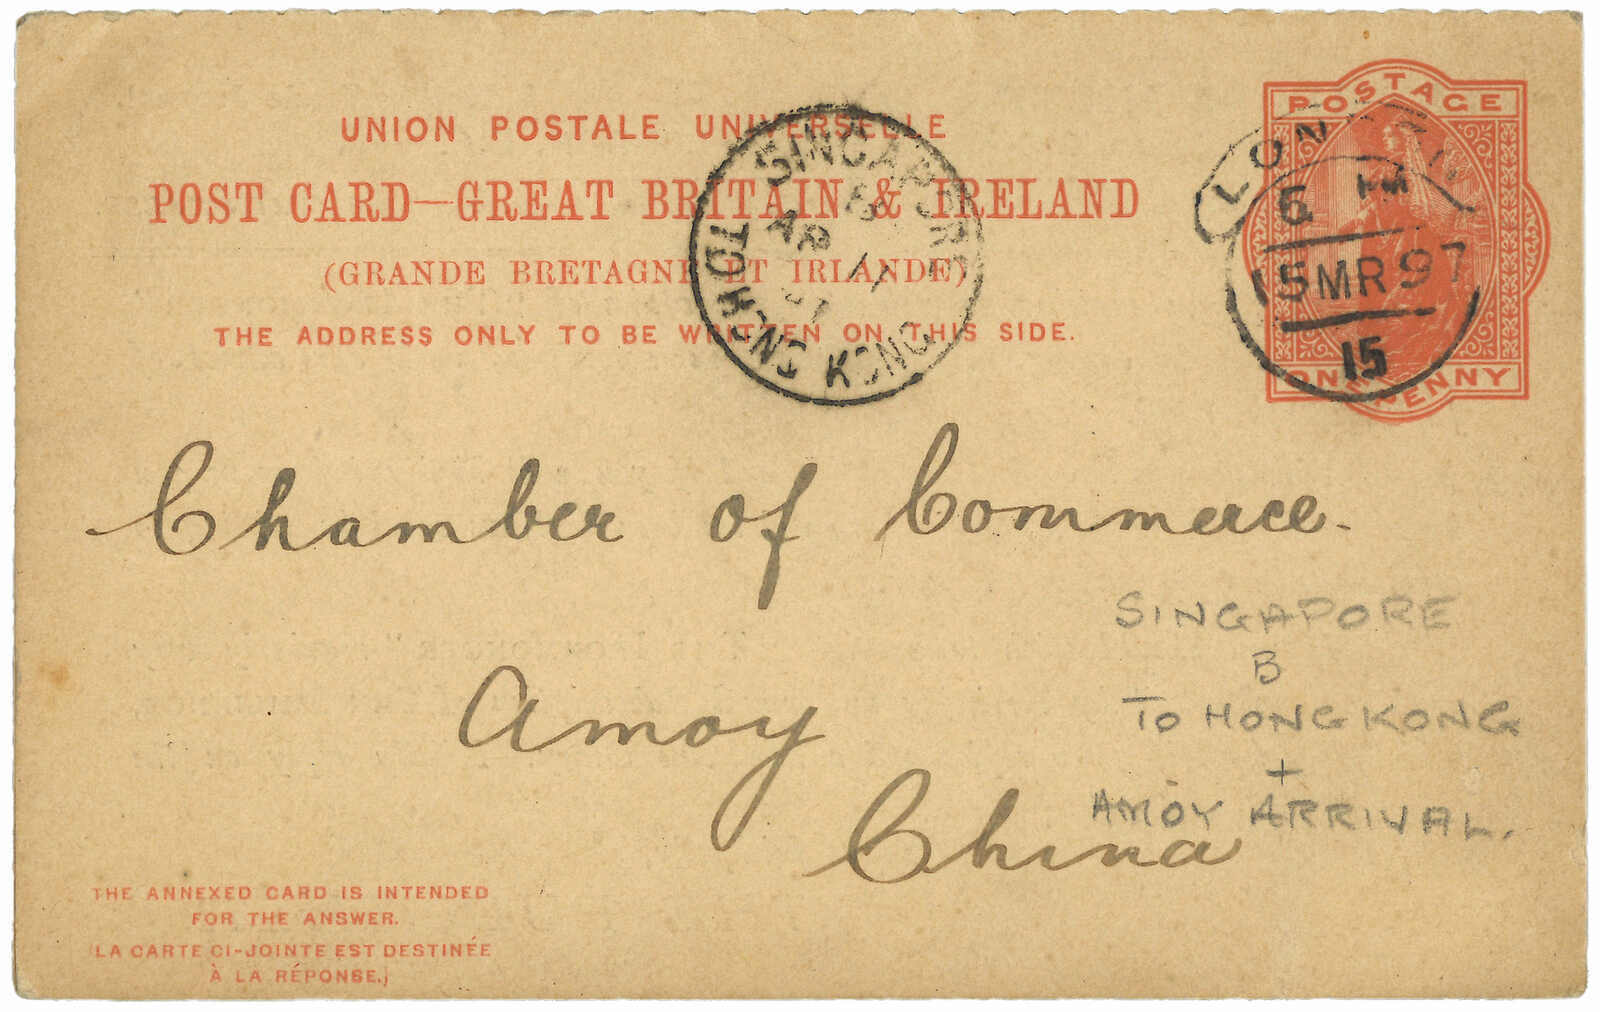 UNION POSTALE UNIVERSELLE
POST CARD—GREAT BRITAIN & IRELAND
(GRANDE BRETAGNE ET IRLANDE)
THE ADDRESS ONLY TO BE WRITTEN ON THIS SIDE.
POSTAGE
ONE PENNY
SINGAPORE
B
AP 11
TO HONG KONG
LONDON
6 PM
15 MR 97
15
Chamber of Commerce.
Amoy
China
SINGAPORE
B
TO HONG KONG
+
AMOY ARRIVAL.
THE ANNEXED CARD IS INTENDED
FOR THE ANSWER.
(LA CARTE CI-JOINTE EST DESTINÉE
À LA RÉPONSE.)